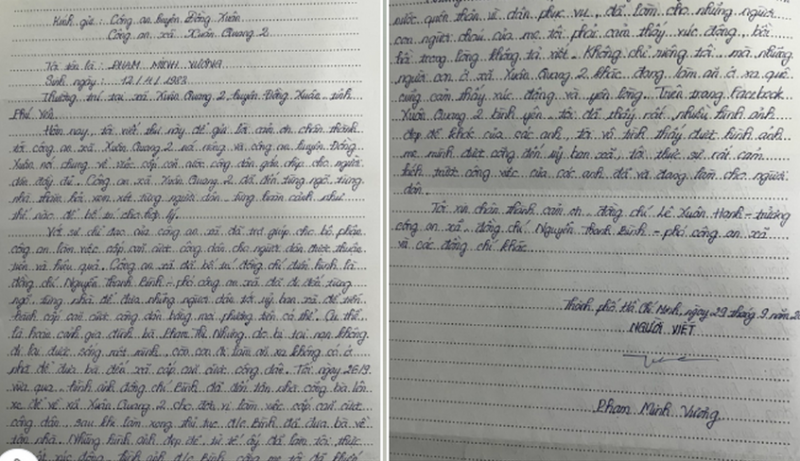 Kính gửi: Công an huyện Đồng Xuân
Công an xã Xuân Quang 2
Tôi tên là: PHẠM MINH VƯƠNG
Sinh ngày: 12/4/1983
Thường trú tại xã Xuân Quang 2, huyện Đồng Xuân, tỉnh
Phú Yên
Hôm nay, tôi viết thư này để gửi lời cảm ơn chân thành
tới công an xã Xuân Quang 2 nói riêng và công an huyện Đồng
Xuân nói chung về việc cấp căn cước công dân gắn chíp cho người
dân đầy đủ. Công an xã Xuân Quang 2 đã đến từng ngõ từng
nhà thăm hỏi xem xét từng người dân từng hoàn cảnh như
thế nào để bố trí cho hợp lý.
Với sự chỉ đạo của công an xã đã trợ giúp cho bộ phận
công an làm việc cấp căn cước công dân cho người dân được thuận
tiện và hiệu quả. Công an xã đã bố trí đồng chí điển hình là
đồng chí Nguyễn Thanh Bình - phó công an xã đã đi đến từng
ngõ, từng nhà để đưa những người dân tới uỷ ban xã để tiến
hành cấp căn cước công dân bằng mọi phương tiện có thể. Cụ thể
là hoàn cảnh gia đình bà Phạm Thị Nhung do bị tai nạn không
đi lại được, sống một mình, còn con đi làm ăn xa không có ở
nhà để đưa bà đến xã cấp căn cước công dân. Tới ngày 26/9
vừa qua, hình ảnh đồng chí Bình đã đến tận nhà cõng bà lên
xe để về xã Xuân Quang 2 cho đơn vị làm việc cấp căn cước
công dân, sau khi làm xong thủ tục đ/c Bình đã đưa bà về
tận nhà. Những hình ảnh đẹp đẽ, tử tế ấy đã làm tôi thực
xúc động, hình ảnh đ/c Bình cõng mẹ tôi đã
nước quên thân vì dân phục vụ, đã làm cho những người
con người cháu của mẹ tôi phải cảm thấy xúc động, bồi
hồi trong lòng không tả xiết. Không chỉ riêng tôi, mà những
người con ở xã Xuân Quang 2 khác đang làm ăn ở xa quê
cũng cảm thấy xúc động và yên lòng. Trên trang Facebook
Xuân Quang 2 bình yên, tôi đã thấy rất nhiều hình ảnh
đẹp đẽ khác của các anh, tôi vô tình thấy được hình ảnh
mẹ mình được cõng đến uỷ ban xã, tôi thực sự rất cảm
kích trước công việc của các anh đã và đang làm cho người
dân.
Tôi xin chân thành cảm ơn đồng chí Lê Xuân Hạnh - trưởng
công an xã, đồng chí Nguyễn Thanh Bình - phó công an xã
và các đồng chí khác.
Thành phố Hồ Chí Minh, ngày 29 tháng 9 năm
NGƯỜI VIẾT
Phạm Minh Vương